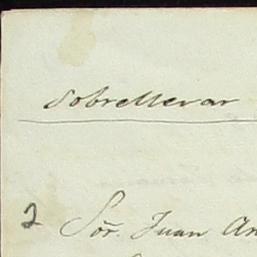 Sobrellevar
2 Sõr. Juan An